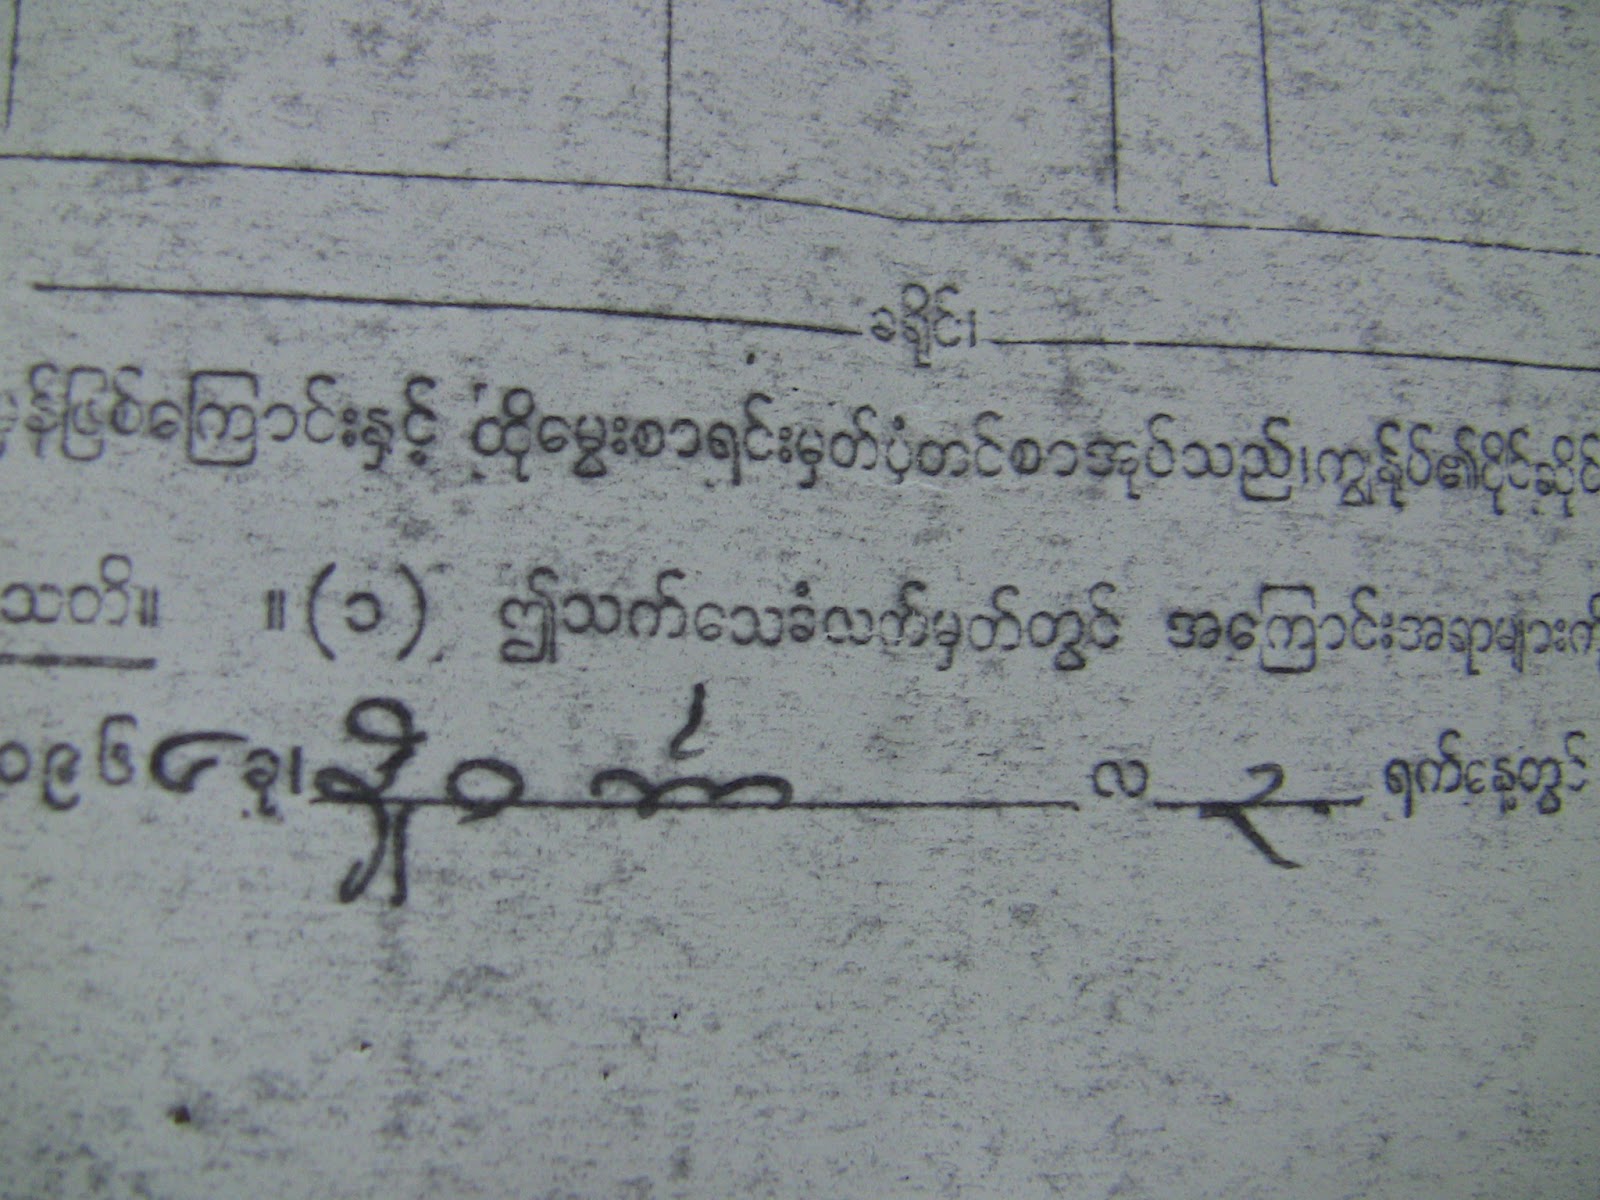 ခရိုင်၊
မှန်ဖြစ်ကြောင်းနှင့် ထိုမွေးစာရင်းမှတ်ပုံတင်စာအုပ်သည်၊ကျွန်ုပ်၏ပိုင်ဆိုင်
သတိ။ ။(၁) ဤသက်သေခံလက်မှတ်တွင် အကြောင်းအရာများကို
၁၉၆၄ခု၊ ဩဂုတ် လ ၃ ရက်နေ့တွင်